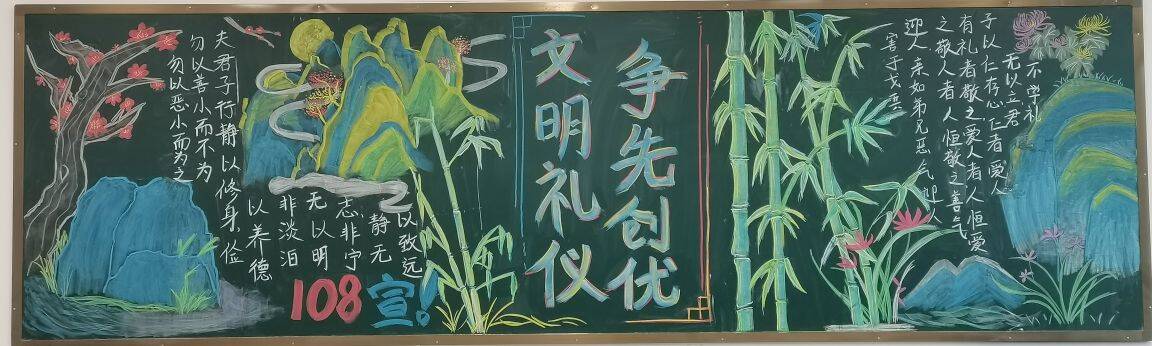 勿以善小而不为
勿以恶小而为之
夫君子行静以修身俭
以养德
非淡泊
无以明
志非宁
静无
以致远
108宣!
文明礼仪
争先创优
不学礼
无以立君
子以仁存心仁者爱人
有礼者敬之爱人者人恒爱
之敬人者人恒敬之善气
迎人亲如弟兄恶气迎人
害于戈